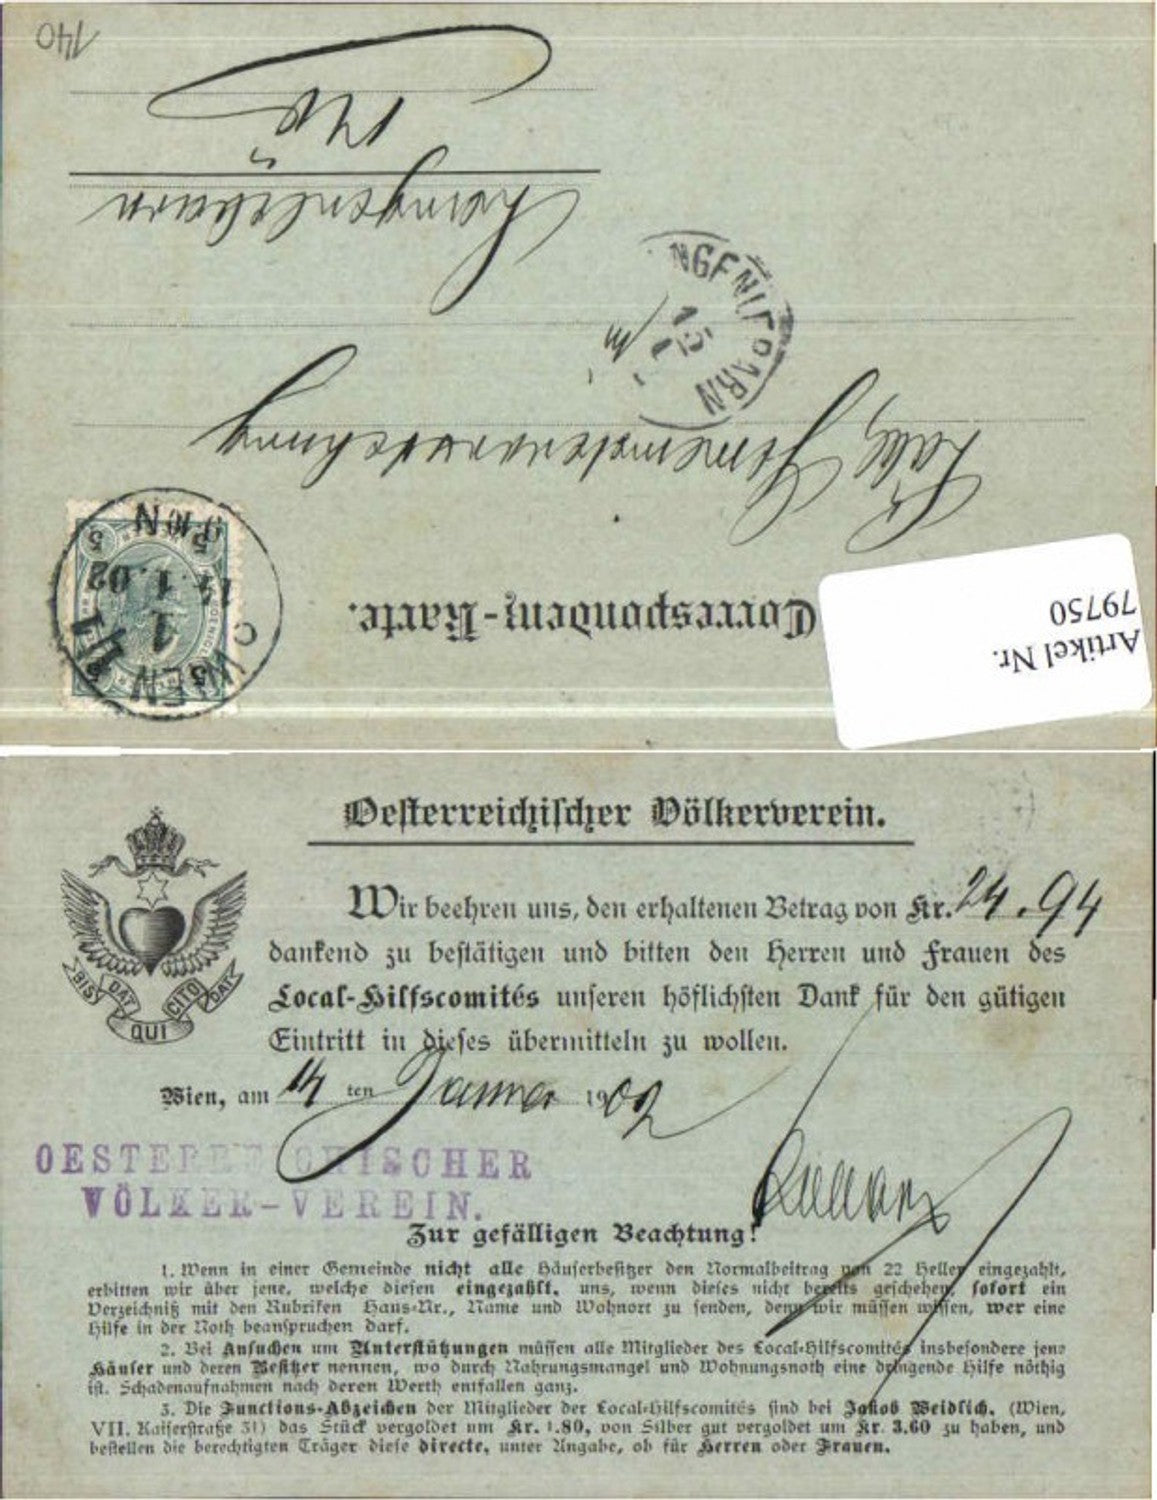 140
N.Ö.
Langenlebarn
NGENLEBARN
15
1
Löbl. Gemeindevorstehung
in
Correspondenz-Karte.
WIEN 1/1
1
14.1.02
9·10 N
5 5
5 5
Artikel Nr.
79750
Oesterreichischer Völkerverein.
BIS DAT QUI CITO DAT
Wir beehren uns, den erhaltenen Betrag von Kr. 24.94
dankend zu bestätigen und bitten den Herren und Frauen des
Local-Hilfscomités unseren höflichsten Dank für den gütigen
Eintritt in dieses übermitteln zu wollen.
Wien, am 14 ten Januar 1902
OESTERREICHISCHER
VÖLKER-VEREIN.
Zur gefälligen Beachtung!
1. Wenn in einer Gemeinde nicht alle Häuserbesitzer den Normalbeitrag von 22 Heller eingezahlt,
erbitten wir über jene, welche diesen eingezahlt, uns, wenn dieses nicht bereits geschehen, sofort ein
Verzeichniß mit den Rubriken Haus-Nr., Name und Wohnort zu senden, denn wir müssen wissen, wer eine
Hilfe in der Noth beanspruchen darf.
2. Bei Ansuchen um Unterstützungen müssen alle Mitglieder des Local-Hilfscomités insbesondere jene
Häuser und deren Besitzer nennen, wo durch Nahrungsmangel und Wohnungsnoth eine dringende Hilfe nöthig
ist. Schadenaufnahmen nach deren Werth entfallen ganz.
3. Die Functions-Abzeichen der Mitglieder der Local-Hilfscomités sind bei Jakob Weidlich, (Wien,
VII. Kaiserstraße 31) das Stück vergoldet um Kr. 1.80, von Silber gut vergoldet um Kr. 3.60 zu haben, und
bestellen die berechtigten Träger diese directe, unter Angabe, ob für Herren oder Frauen.